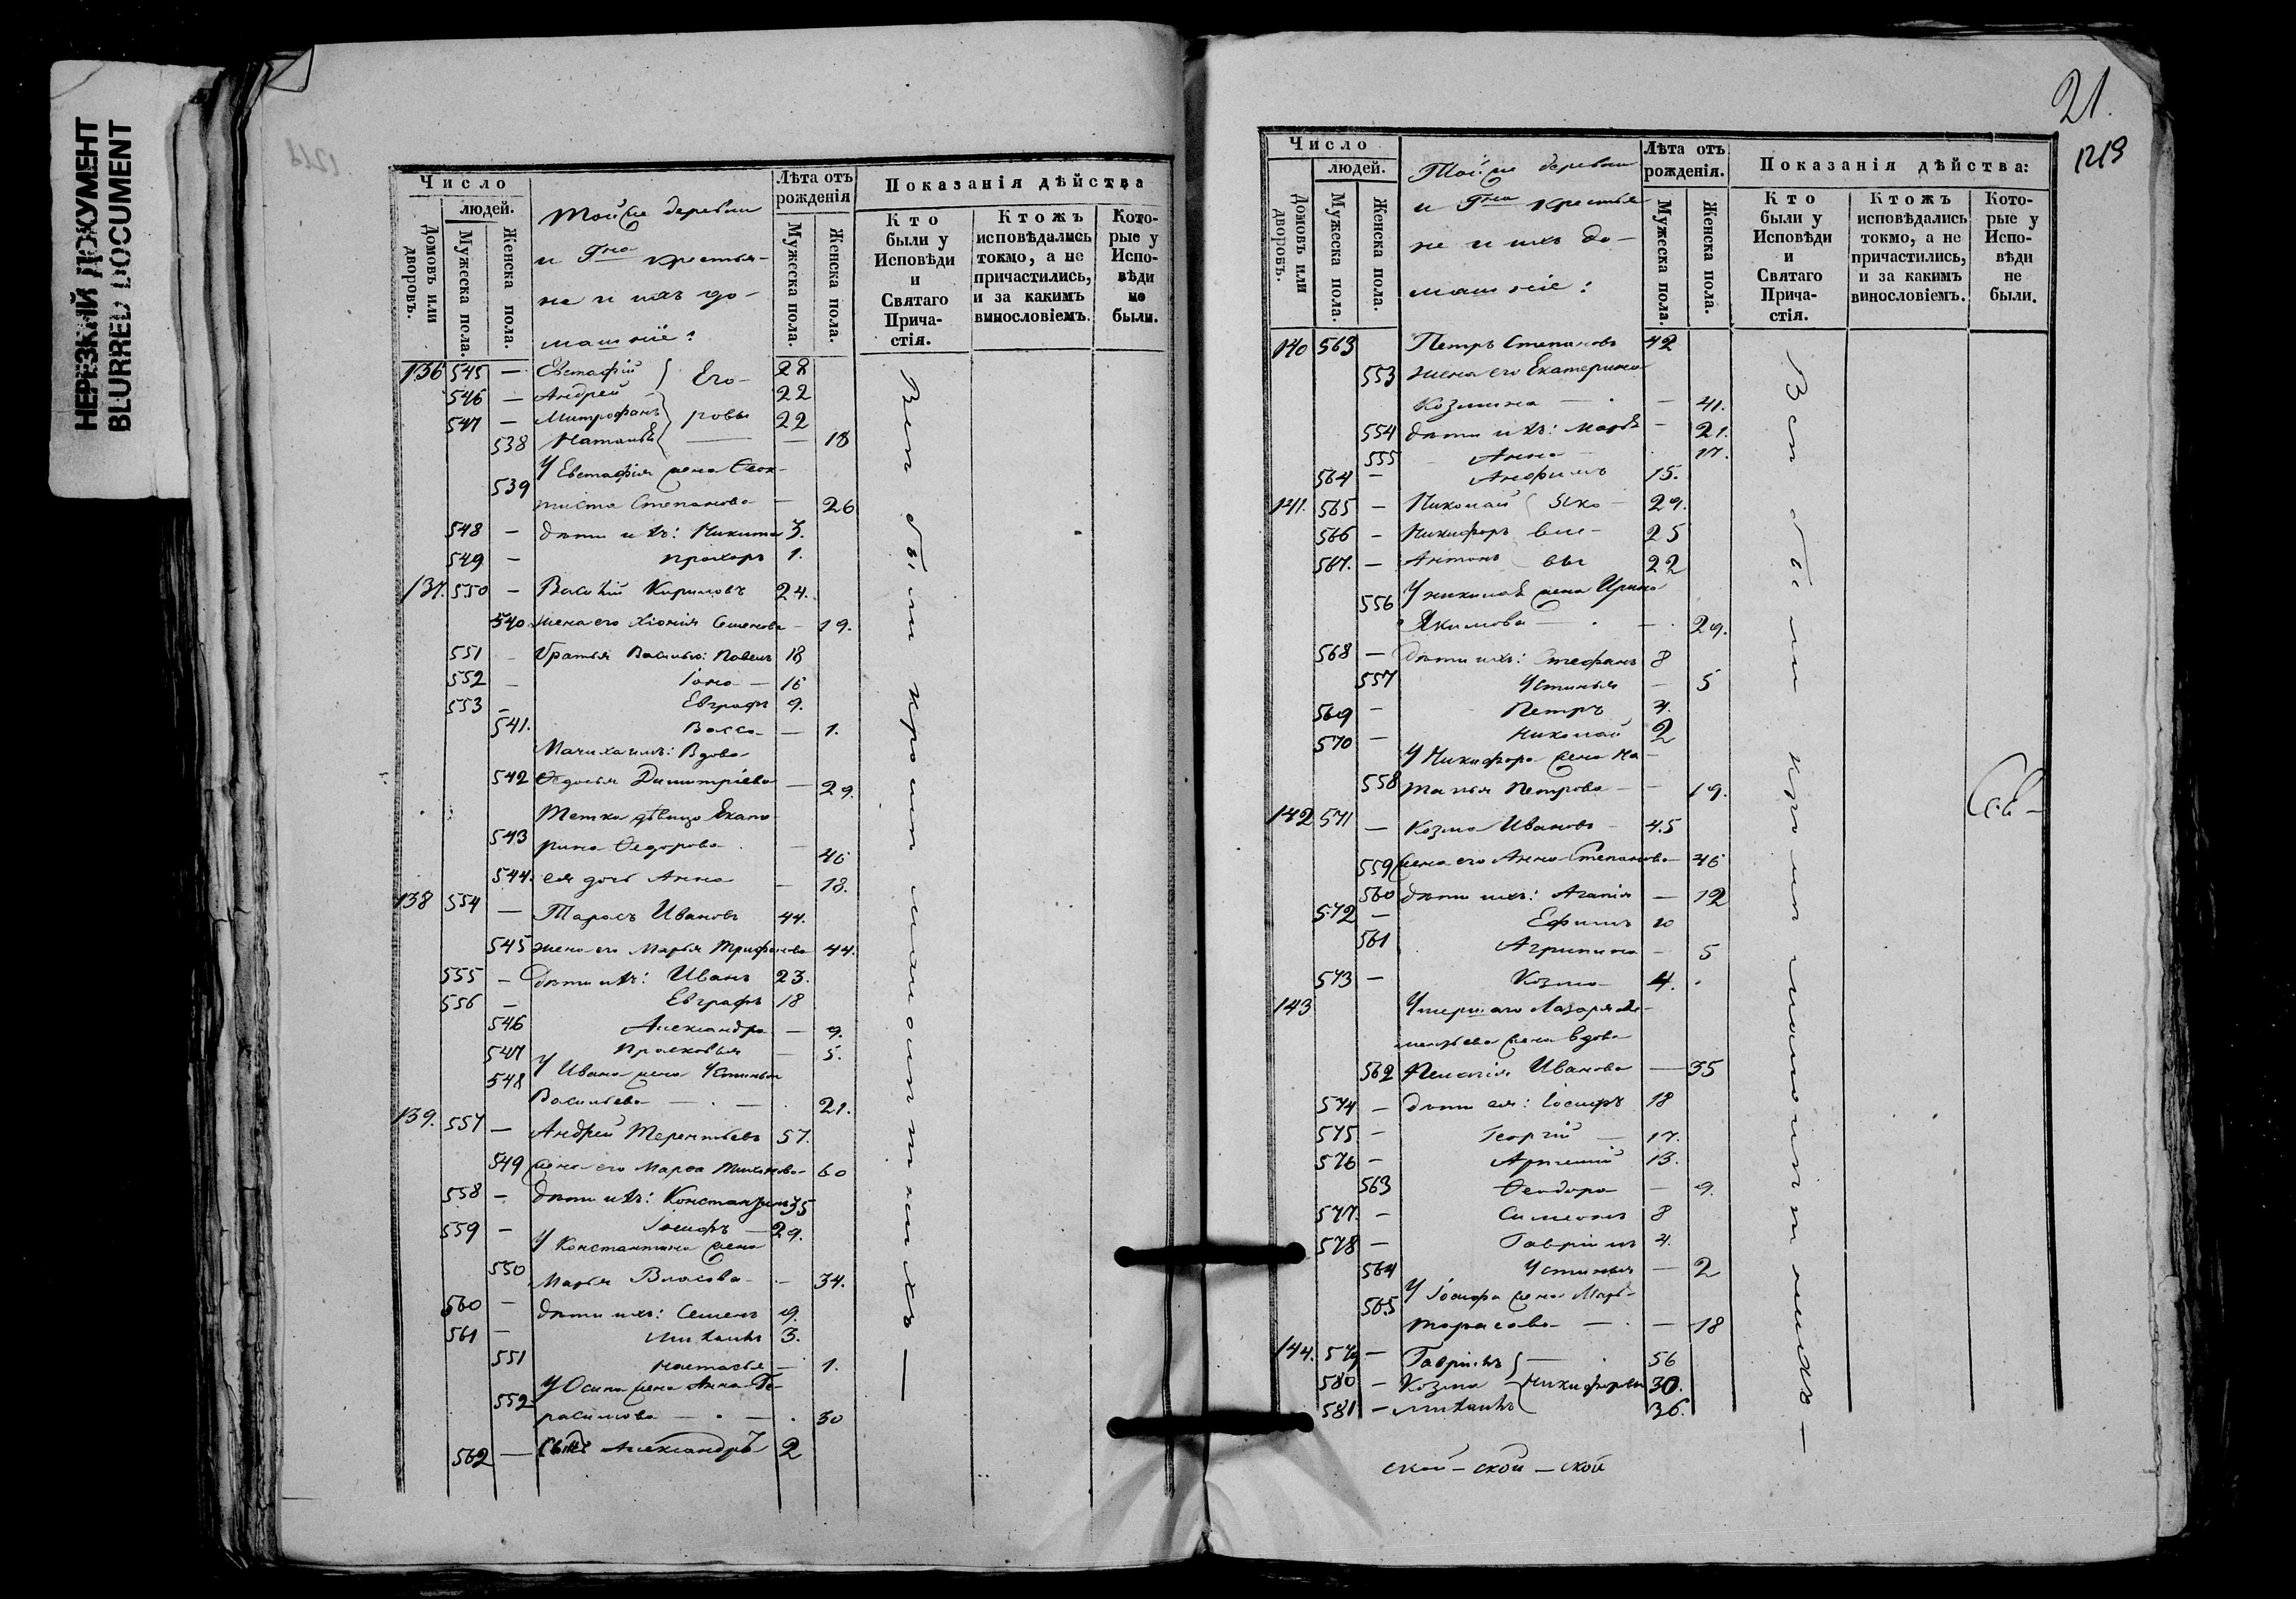 НЕРЕЗКИЙ ДОКУМЕНТ
BLURRED DOCUMENT
Число
людей.
Домовъ или дворовъ.
Мужеска пола.
Женска пола.
Тойже деревни
и Гна крестья-
не и ихъ до-
машніе:
Лѣта отъ рожденія
Мужеска пола.
Женска пола.
Показанія дѣйства
Кто были у Исповѣди и Святаго Прича-стія.
Ктожъ исповѣдались токмо, а не причастились, и за какимъ винословіемъ.
Кото-рые у Испо-вѣди не были.
136 545 — Евстафій Его- 28
546 — Андрей 22
547 — Митрофанъ ровы 22
538 Наталья — — 18
У Евстафія жена Феок-
539 тиста Степанова — 26
548 — дѣти ихъ: Никита 3.
549 — Прохоръ 1.
137. 550 — Василій Кириловъ 24.
540 жена его Хіонія Семенова — 19.
551 — братья Василью: Павелъ 18
552 — Іона — 16
553 — Евграфъ 9.
541. Васса — 1.
Мачиха имъ: Вдова
542 Федосья Димитріева — 29.
Тетка дѣвица Екате
543 рина Федорова — 46
544. ея дочь Анна — 18.
138 554 — Тарасъ Ивановъ 44.
545 жена его Марья Трифонова 44.
555 — Дѣти ихъ: Иванъ 23.
556 — Евграфъ 18
546 Александра — 9.
547 Прасковья — 5.
У Ивана жена Устинья
548 Васильева — . — . 21.
139. 557 — Андрей Терентьевъ 57.
549 жена его Марфа Тихонова — 60
558 — дѣти ихъ: Константинъ 35
559 — Іосифъ — 29.
У Константина жена
550 Марья Власова — — 34.
560 — дѣти ихъ: Семенъ 9.
561 — Михаилъ 3.
551 Настасья — 1.
У Осипа жена Анна Ге-
552 расимова — . — . 30
562 — Сынъ Александръ 2
Всѣ были кромѣ малолѣтнихъ —
21.
1219
Число
людей.
Домовъ или дворовъ.
Мужеска пола.
Женска пола.
Тойже деревни
и Гна крестья
не и ихъ до-
машніе:
Лѣта отъ рожденія.
Мужеска пола.
Женска пола.
Показанія дѣйства:
Кто были у Исповѣди и Святаго Прича-стія.
Ктожъ исповѣдались токмо, а не причастились, и за какимъ винословіемъ.
Кото-рые у Испо-вѣди не были.
140 563 Петръ Степановъ 42
553 жена его Екатерина
Козмина — . — 41.
554 дѣти ихъ: Марья — 21.
555 Анна . 17.
564 — Анфимъ 15.
141. 565 — Николай Яко- 29.
566 — Никифоръ вле- 25
567. — Антонъ вы 22
556 У Николая жена Ирина
Якимова — . — . 29.
568 — Дѣти ихъ: Стефанъ 8
557 Устинья — 5
569 — Петръ 4.
570 — Николай 2
У Никифора жена На —
558 талья Петрова — — 19.
142 571 — Козма Ивановъ 45
559 жена его Анна Степанова 46
560 дѣти ихъ: Агапія — 12
572 — Ефимъ 10
561 Агрипина — 5
573 — Козма 4.
143 Умершаго Лазаря
жена вдова
562 Иванова — 35
574 — дѣти ея: Іосифъ 18
575. — Георгій — 17.
576 — Артемій 13.
563 Феодора — 9.
577. — Симеонъ 8
578 — Гавріилъ 4.
564 Устинья — 2
У Іосифа жена Марья
565 Тарасова — . — 18
144. 579 — Гавріилъ — . 56
580 — Козма Никифоровы 30.
581 — Михаилъ 36.
Всѣ были кромѣ малолѣтнихъ —
ской — ской — ской